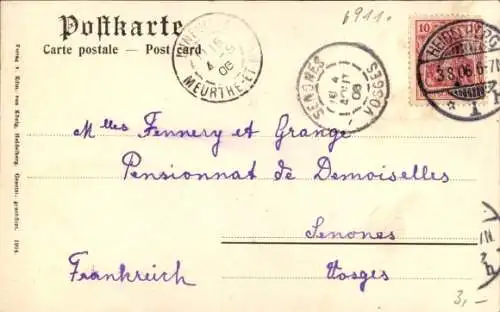 Postkarte
Carte postale — Post card
6911.
10
HEIDELBERG
3.8.06. 6-7N.
1
MEURTHE-ET-
4
08
SENONES
VOSGES
4
AOUT
08
Mlles Fennery et Grange
Pensionnat de Demoiselles
Senones
Frankreich Vosges
3,-
Verlag v. Edm. von König, Heidelberg. Gesetzl. geschützt. 1904.